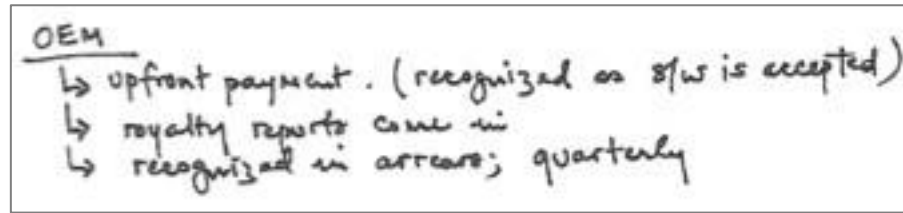 OEM
↳ upfront payment. (recognized as s/w is accepted)
↳ royalty reports come in
↳ recognized in arrears; quarterly